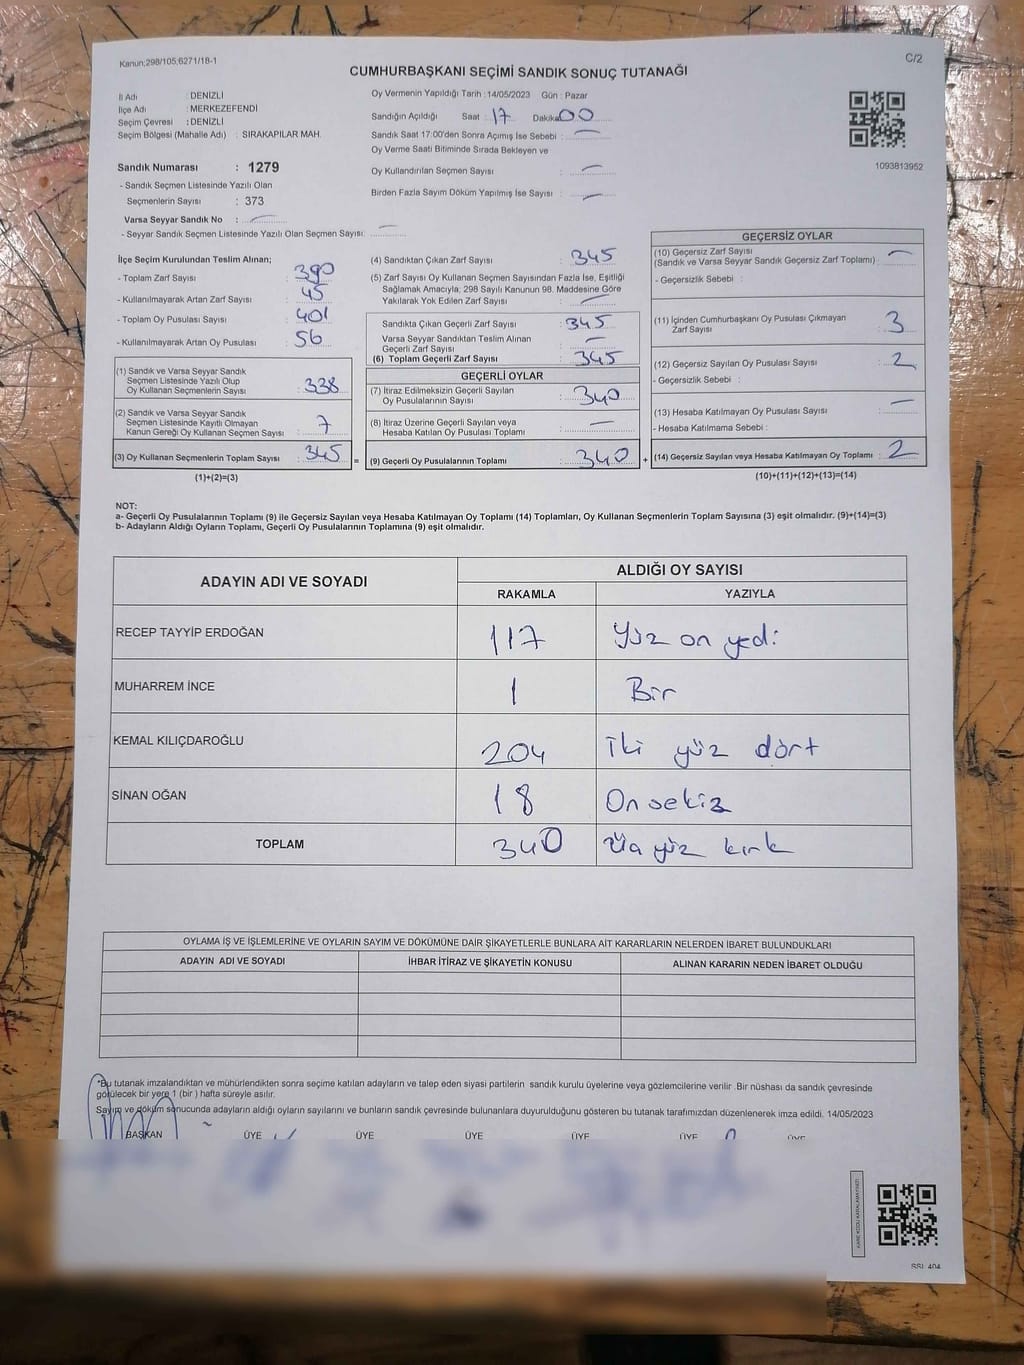 Kanun;298/105;6271/18-1
C/2
CUMHURBAŞKANI SEÇİMİ SANDIK SONUÇ TUTANAĞI
İl Adı : DENİZLİ
İlçe Adı : MERKEZEFENDİ
Seçim Çevresi : DENİZLİ
Seçim Bölgesi (Mahalle Adı) : SIRAKAPILAR MAH.
Sandık Numarası : 1279
- Sandık Seçmen Listesinde Yazılı Olan
Seçmenlerin Sayısı : 373
Varsa Seyyar Sandık No :
- Seyyar Sandık Seçmen Listesinde Yazılı Olan Seçmen Sayısı:
Oy Vermenin Yapıldığı Tarih :14/05/2023 Gün : Pazar
Sandığın Açıldığı Saat : 17 Dakika: 00
Sandık Saat 17:00'den Sonra Açımış İse Sebebi :
Oy Verme Saati Bitiminde Sırada Bekleyen ve
Oy Kullandırılan Seçmen Sayısı :
Birden Fazla Sayım Döküm Yapılmış İse Sayısı :
1093813952
İlçe Seçim Kurulundan Teslim Alınan;
- Toplam Zarf Sayısı : 390
- Kullanılmayarak Artan Zarf Sayısı : 45
- Toplam Oy Pusulası Sayısı : 401
- Kullanılmayarak Artan Oy Pusulası : 56
(1) Sandık ve Varsa Seyyar Sandık
Seçmen Listesinde Yazılı Olup
Oy Kullanan Seçmenlerin Sayısı : 338
(2) Sandık ve Varsa Seyyar Sandık
Seçmen Listesinde Kayıtlı Olmayan
Kanun Gereği Oy Kullanan Seçmen Sayısı : 7
(3) Oy Kullanan Seçmenlerin Toplam Sayısı : 345
(1)+(2)=(3)
(4) Sandıktan Çıkan Zarf Sayısı : 345
(5) Zarf Sayısı Oy Kullanan Seçmen Sayısından Fazla İse, Eşitliği
Sağlamak Amacıyla; 298 Sayılı Kanunun 98. Maddesine Göre
Yakılarak Yok Edilen Zarf Sayısı :
Sandıkta Çıkan Geçerli Zarf Sayısı : 345
Varsa Seyyar Sandıktan Teslim Alınan
Geçerli Zarf Sayısı :
(6) Toplam Geçerli Zarf Sayısı : 345
GEÇERLİ OYLAR
(7) İtiraz Edilmeksizin Geçerli Sayılan
Oy Pusulalarının Sayısı : 340
(8) İtiraz Üzerine Geçerli Sayılan veya
Hesaba Katılan Oy Pusulası Toplamı :
= (9) Geçerli Oy Pusulalarının Toplamı : 340 +
GEÇERSİZ OYLAR
(10) Geçersiz Zarf Sayısı
(Sandık ve Varsa Seyyar Sandık Geçersiz Zarf Toplamı) :
- Geçersizlik Sebebi :
(11) İçinden Cumhurbaşkanı Oy Pusulası Çıkmayan
Zarf Sayısı : 3
(12) Geçersiz Sayılan Oy Pusulası Sayısı : 2
- Geçersizlik Sebebi :
(13) Hesaba Katılmayan Oy Pusulası Sayısı :
- Hesaba Katılmama Sebebi :
(14) Geçersiz Sayılan veya Hesaba Katılmayan Oy Toplamı : 2
(10)+(11)+(12)+(13)=(14)
NOT:
a- Geçerli Oy Pusulalarının Toplamı (9) ile Geçersiz Sayılan veya Hesaba Katılmayan Oy Toplamı (14) Toplamları, Oy Kullanan Seçmenlerin Toplam Sayısına (3) eşit olmalıdır. (9)+(14)=(3)
b- Adayların Aldığı Oyların Toplamı, Geçerli Oy Pusulalarının Toplamına (9) eşit olmalıdır.
ADAYIN ADI VE SOYADI ALDIĞI OY SAYISI
RAKAMLA YAZIYLA
RECEP TAYYİP ERDOĞAN 117 Yüz on yedi
MUHARREM İNCE 1 Bir
KEMAL KILIÇDAROĞLU 204 İki yüz dört
SİNAN OĞAN 18 On sekiz
TOPLAM 340 Üç yüz kırk
OYLAMA İŞ VE İŞLEMLERİNE VE OYLARIN SAYIM VE DÖKÜMÜNE DAİR ŞİKAYETLERLE BUNLARA AİT KARARLARIN NELERDEN İBARET BULUNDUKLARI
ADAYIN ADI VE SOYADI İHBAR İTİRAZ VE ŞİKAYETİN KONUSU ALINAN KARARIN NEDEN İBARET OLDUĞU
*Bu tutanak imzalandıktan ve mühürlendikten sonra seçime katılan adayların ve talep eden siyasi partilerin sandık kurulu üyelerine veya gözlemcilerine verilir .Bir nüshası da sandık çevresinde
görülecek bir yere 1 (bir ) hafta süreyle asılır.
Sayım ve döküm sonucunda adayların aldığı oyların sayılarını ve bunların sandık çevresinde bulunanlara duyurulduğunu gösteren bu tutanak tarafımızdan düzenlenerek imza edildi. 14/05/2023
BAŞKAN ÜYE ÜYE ÜYE ÜYE ÜYE ÜYE